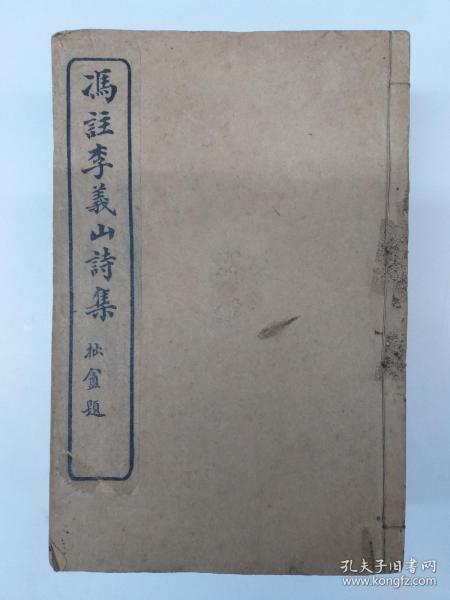 馮註李義山詩集
拙盦題
孔夫子旧书网
www.kongfz.com